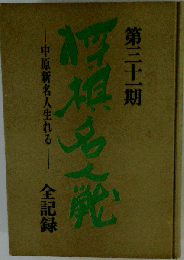 第三十一期
将棋名人戦
―中原新名人生れる―
全記録